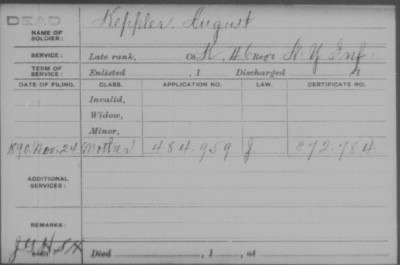 DEAD
NAME OF SOLDIER: Keppler August
SERVICE: Late rank, Co. K, 46 Reg't N.Y. Inf.
TERM OF SERVICE: Enlisted , 1 Discharged , 1
DATE OF FILING. CLASS. APPLICATION NO. LAW. CERTIFICATE NO.
Invalid,
Widow,
Minor,
1890 Nov. 24 Mother 484.959 J 372.784
ADDITIONAL SERVICES:
REMARKS:
Died , 1 , at